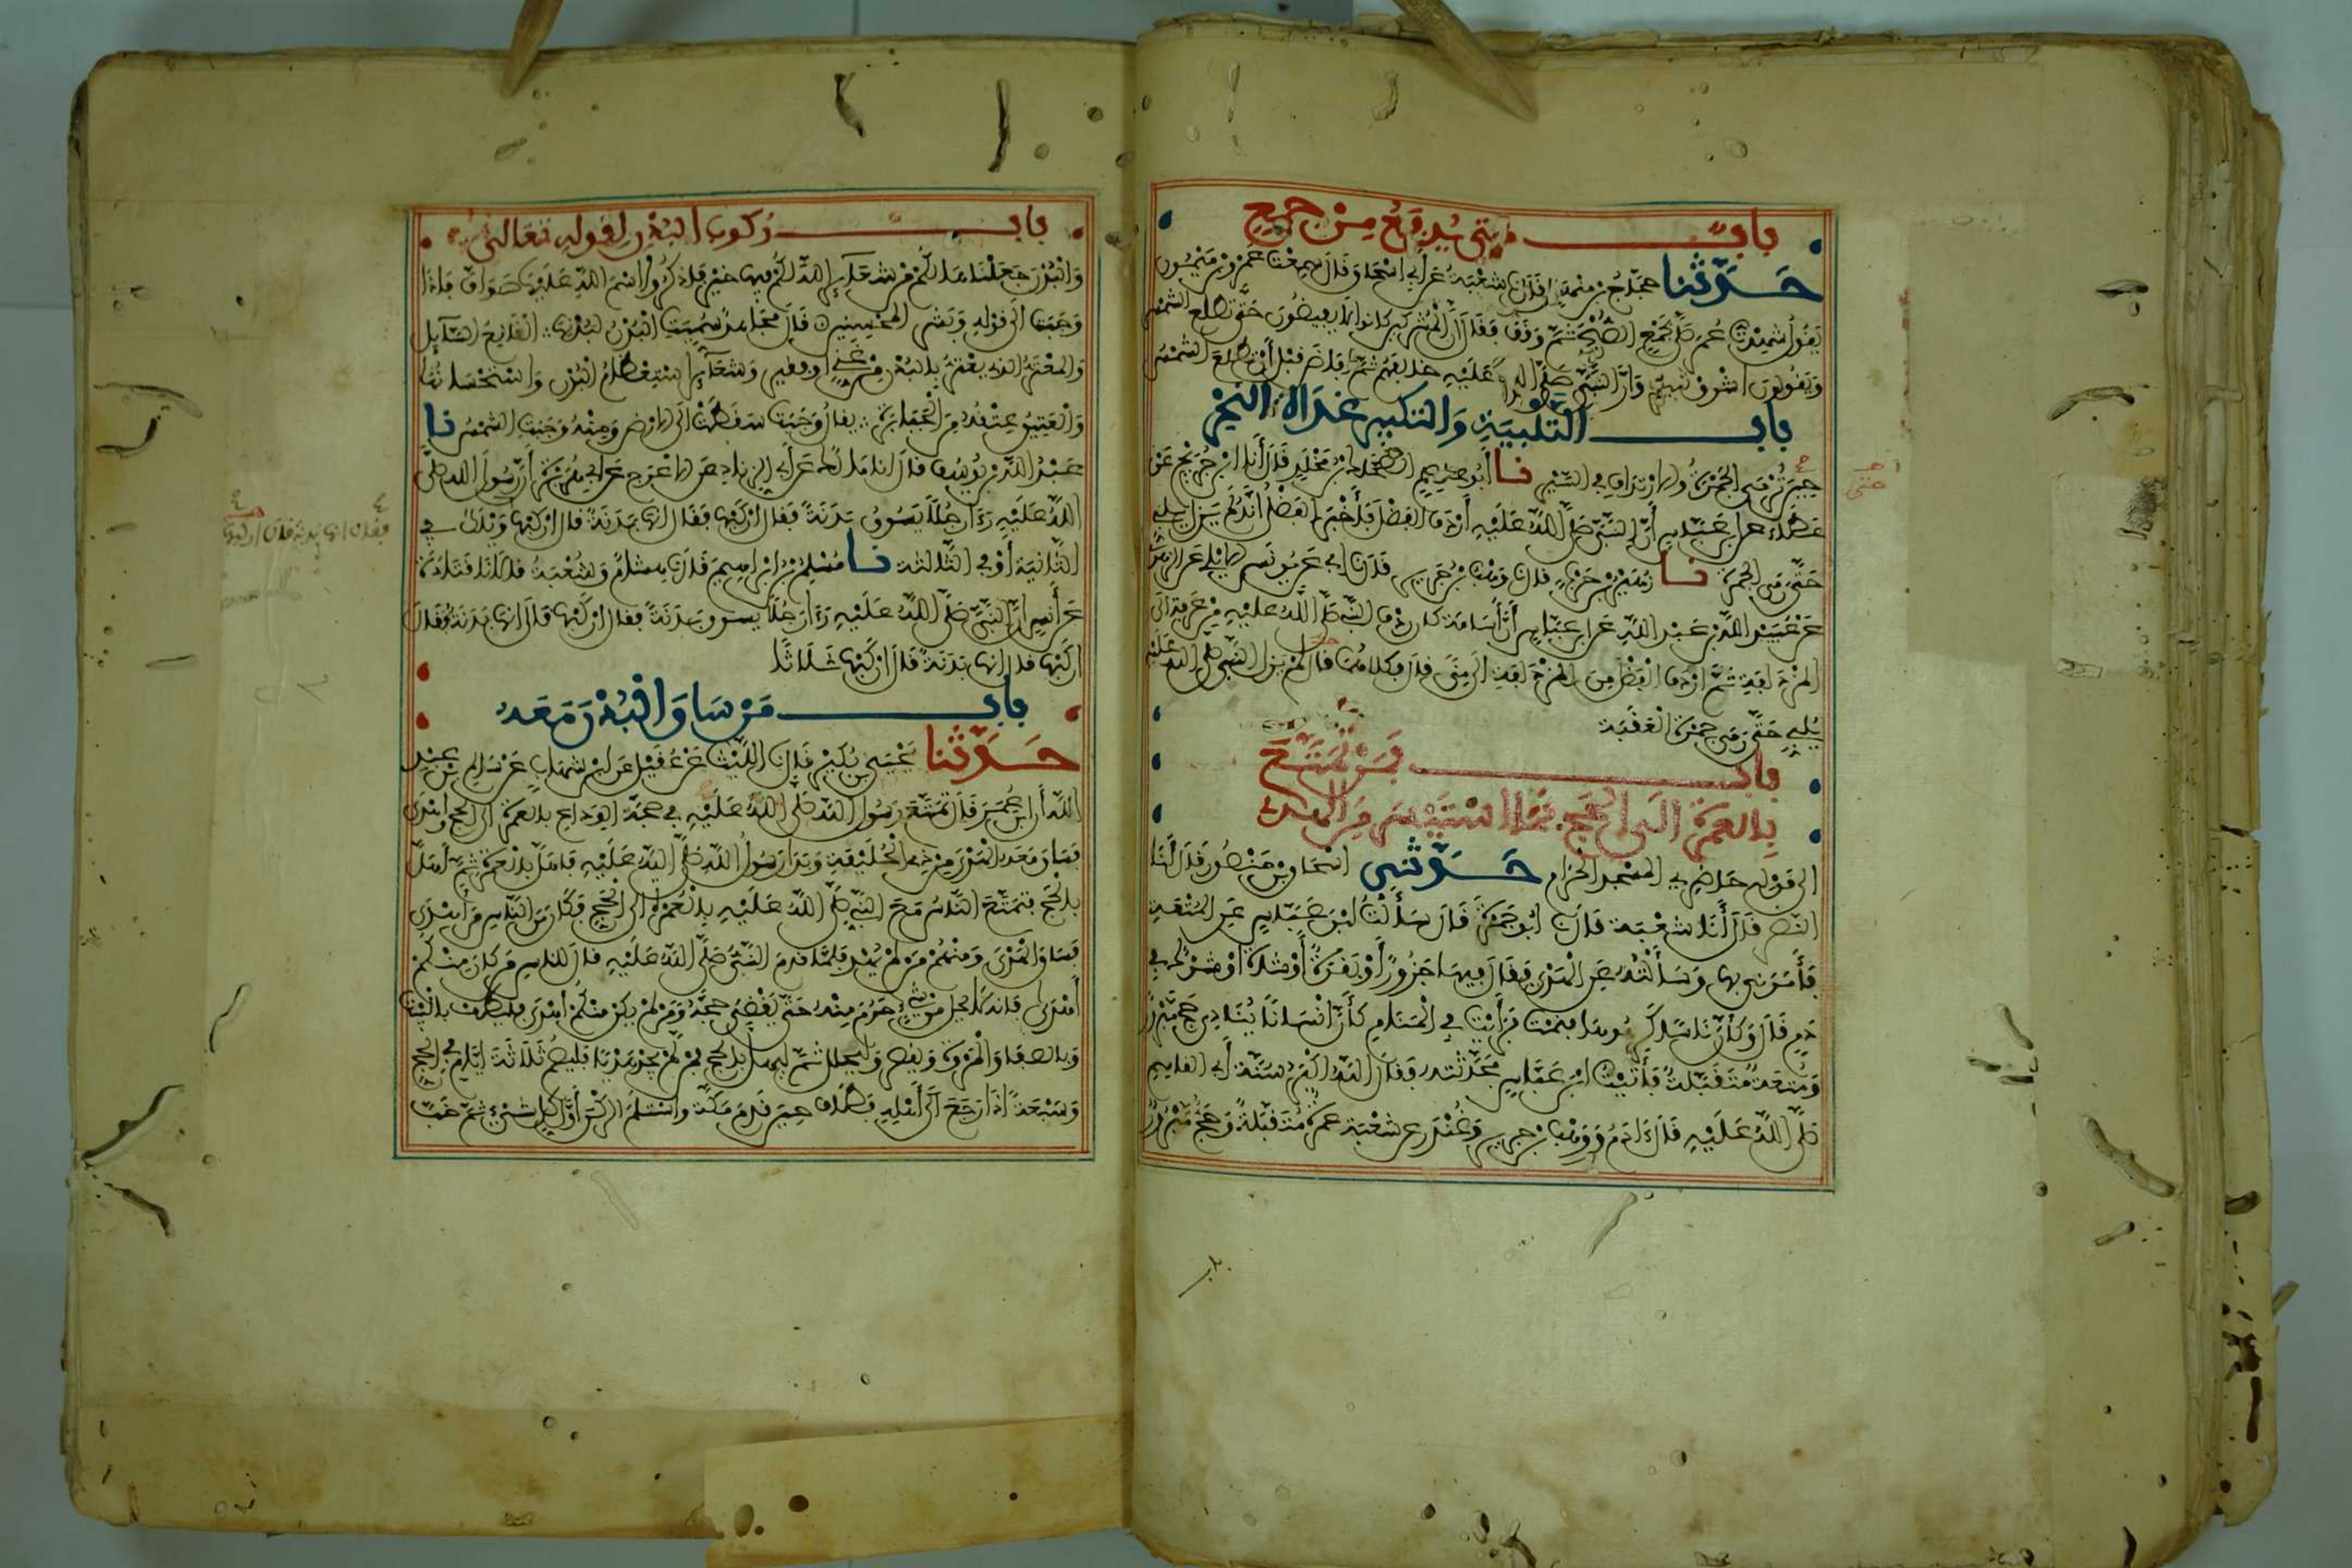 باب متى يدفع من جمع
حدثنا حجاج بن منهال قال نا شعبة عن أبي إسحاق قال سمعت عمرو بن ميمون
يقول شهدت عمر صلى بجمع الصبح ثم وقف فقال إن المشركين كانوا لا يفيضون حتى تطلع الشمس
ويقولون أشرق ثبير وأن النبي صلى الله عليه خالفهم ثم أفاض قبل أن تطلع الشمس
باب التلبية والتكبير غداة النحر
حين ترمى الجمرة والارتداف في السير نا أبو عاصم الضحاك بن مخلد قال أنا ابن جريج عن
عطاء عن ابن عباس أن النبي صلى الله عليه أردف الفضل فأخبر الفضل أنه لم يزل يلبي
حتى رمى الجمرة نا زهير بن حرب قال نا وهب بن جرير قال نا أبي عن يونس الأيلي عن الزهري
عن عبيد الله بن عبد الله عن ابن عباس أن أسامة كان ردف النبي صلى الله عليه من عرفة إلى
المزدلفة ثم أردف الفضل من المزدلفة إلى منى قال فكلاهما قال لم يزل النبي صلى الله عليه
يلبي حتى رمى جمرة العقبة
باب فمن تمتع
بالعمرة إلى الحج فما استيسر من الهدي
إلى قوله حاضري المسجد الحرام حدثني إسحاق بن منصور قال أنا
النضر قال أنا شعبة قال نا أبو جمرة قال سألت ابن عباس عن المتعة
فأمرني بها وسألته عن الهدي فقال فيها جزور أو بقرة أو شاة أو شرك في
دم قال وكأن ناسا كرهوها فنمت فرأيت في المنام كأن إنسانا ينادي حج مبرور
ومتعة متقبلة فأتيت ابن عباس فحدثته فقال الله أكبر سنة أبي القاسم
صلى الله عليه قال آدم ووهب بن جرير وغندر عن شعبة عمرة متقبلة وحج مبرور
باب ركوب البدن لقوله تعالى
والبدن جعلناها لكم من شعائر الله لكم فيها خير فاذكروا اسم الله عليها صواف فإذا
وجبت إلى قوله وبشر المحسنين قال مجاهد سميت البدن لبدنها القانع السائل
والمعتر الذي يعتر بالبدن من غني أو فقير وشعائر استعظام البدن واستحسانها
والعتيق عتقه من الجبابرة يقال وجبت سقطت إلى الأرض ومنه وجبت الشمس نا
عبد الله بن يوسف قال أنا مالك عن أبي الزناد عن الأعرج عن أبي هريرة أن رسول الله صلى
الله عليه رءا رجلا يسوق بدنة فقال اركبها فقال إنها بدنة قال اركبها ويلك في
الثانية أو في الثالثة نا مسلم بن إبراهيم قال نا هشام وشعبة قالا نا قتادة
عن أنس أن النبي صلى الله عليه رءا رجلا يسوق بدنة فقال اركبها قال إنها بدنة فقال
اركبها قال إنها بدنة قال اركبها ثلاثا
باب من ساق البدن معه
حدثنا يحيى بن بكير قال نا الليث عن عقيل عن ابن شهاب عن سالم بن عبد
الله أن ابن عمر قال تمتع رسول الله صلى الله عليه في حجة الوداع بالعمرة إلى الحج وأهدى
فساق معه الهدي من ذي الحليفة وبدأ رسول الله صلى الله عليه فأهل بالعمرة ثم أهل
بالحج فتمتع الناس مع النبي صلى الله عليه بالعمرة إلى الحج فكان من الناس من أهدى
فساق الهدي ومنهم من لم يهد فلما قدم النبي صلى الله عليه قال للناس من كان منكم
أهدى فإنه لا يحل من شيء حرم منه حتى يقضي حجه ومن لم يكن منكم أهدى فليطف بالبيت
وبالصفا والمروة ويقصر وليحلل ثم ليهل بالحج فمن لم يجد هديا فليصم ثلاثة أيام في الحج
وسبعة إذا رجع إلى أهله فطاف حين قدم مكة واستلم الركن أول شيء ثم خب
فقال إنها بدنة قال اركبها